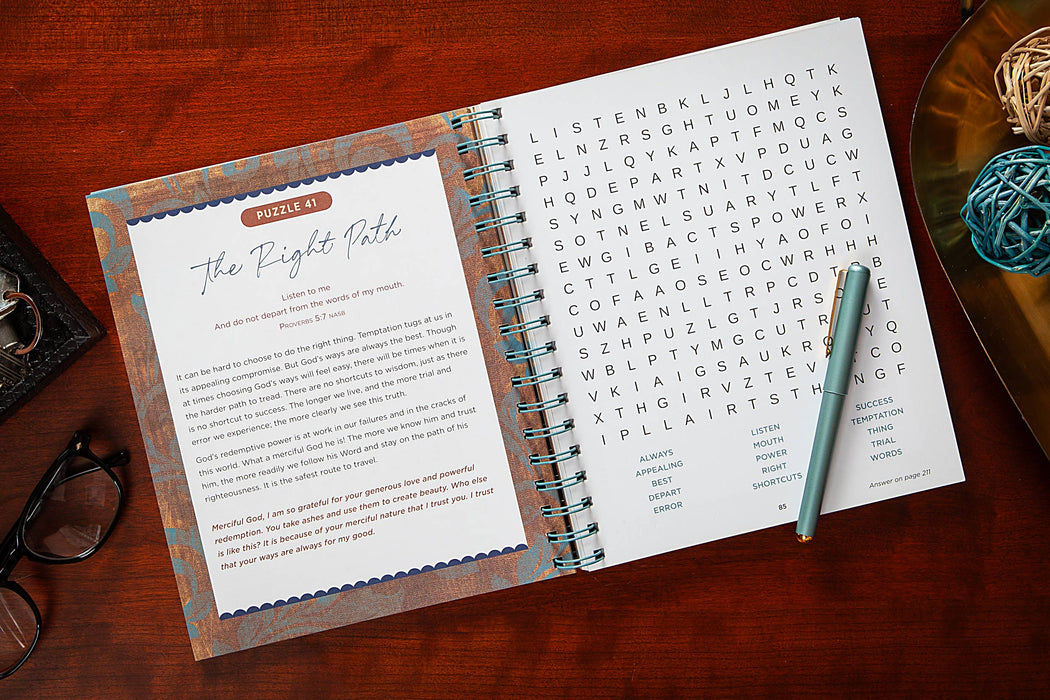 PUZZLE 41
the Right Path
Listen to me
And do not depart from the words of my mouth.
PROVERBS 5:7 NASB
It can be hard to choose to do the right thing. Temptation tugs at us in
its appealing compromise. But God's ways are always the best. Though
at times choosing God's ways will feel easy, there will be times when it is
the harder path to tread. There are no shortcuts to wisdom, just as there
is no shortcut to success. The longer we live, and the more trial and
error we experience, the more clearly we see this truth.
God's redemptive power is at work in our failures and in the cracks of
this world. What a merciful God he is! The more we know him and trust
him, the more readily we follow his Word and stay on the path of his
righteousness. It is the safest route to travel.
Merciful God, I am so grateful for your generous love and powerful
redemption. You take ashes and use them to create beauty. Who else
is like this? It is because of your merciful nature that I trust you. I trust
that your ways are always for my good.
L I S T E N B K L J L H Q T K
E L N Z R S G H T U O M E Y K
P J J L Q Y K A P T F M Q C S
H Q D E P A R T X V P D U A G
S Y N G M W T N I T D C U C W
S O T N E L S U A R Y T L F T
E W G I B A C T S P O W E R X
C T T L G E I I H Y A O F O I
C O F A A O S E O C W R H H H
U W A E N L L T R P C D T B
S Z H P U Z L G T J R S E
W B L P T Y M G C U T R
V K I A I G S A U K R Y Q
X T H G I R V Z T E V C O
I P L L A I R T S T H N G F
ALWAYS
APPEALING
BEST
DEPART
ERROR
LISTEN
MOUTH
POWER
RIGHT
SHORTCUTS
SUCCESS
TEMPTATION
THING
TRIAL
WORDS
85
Answer on page 211